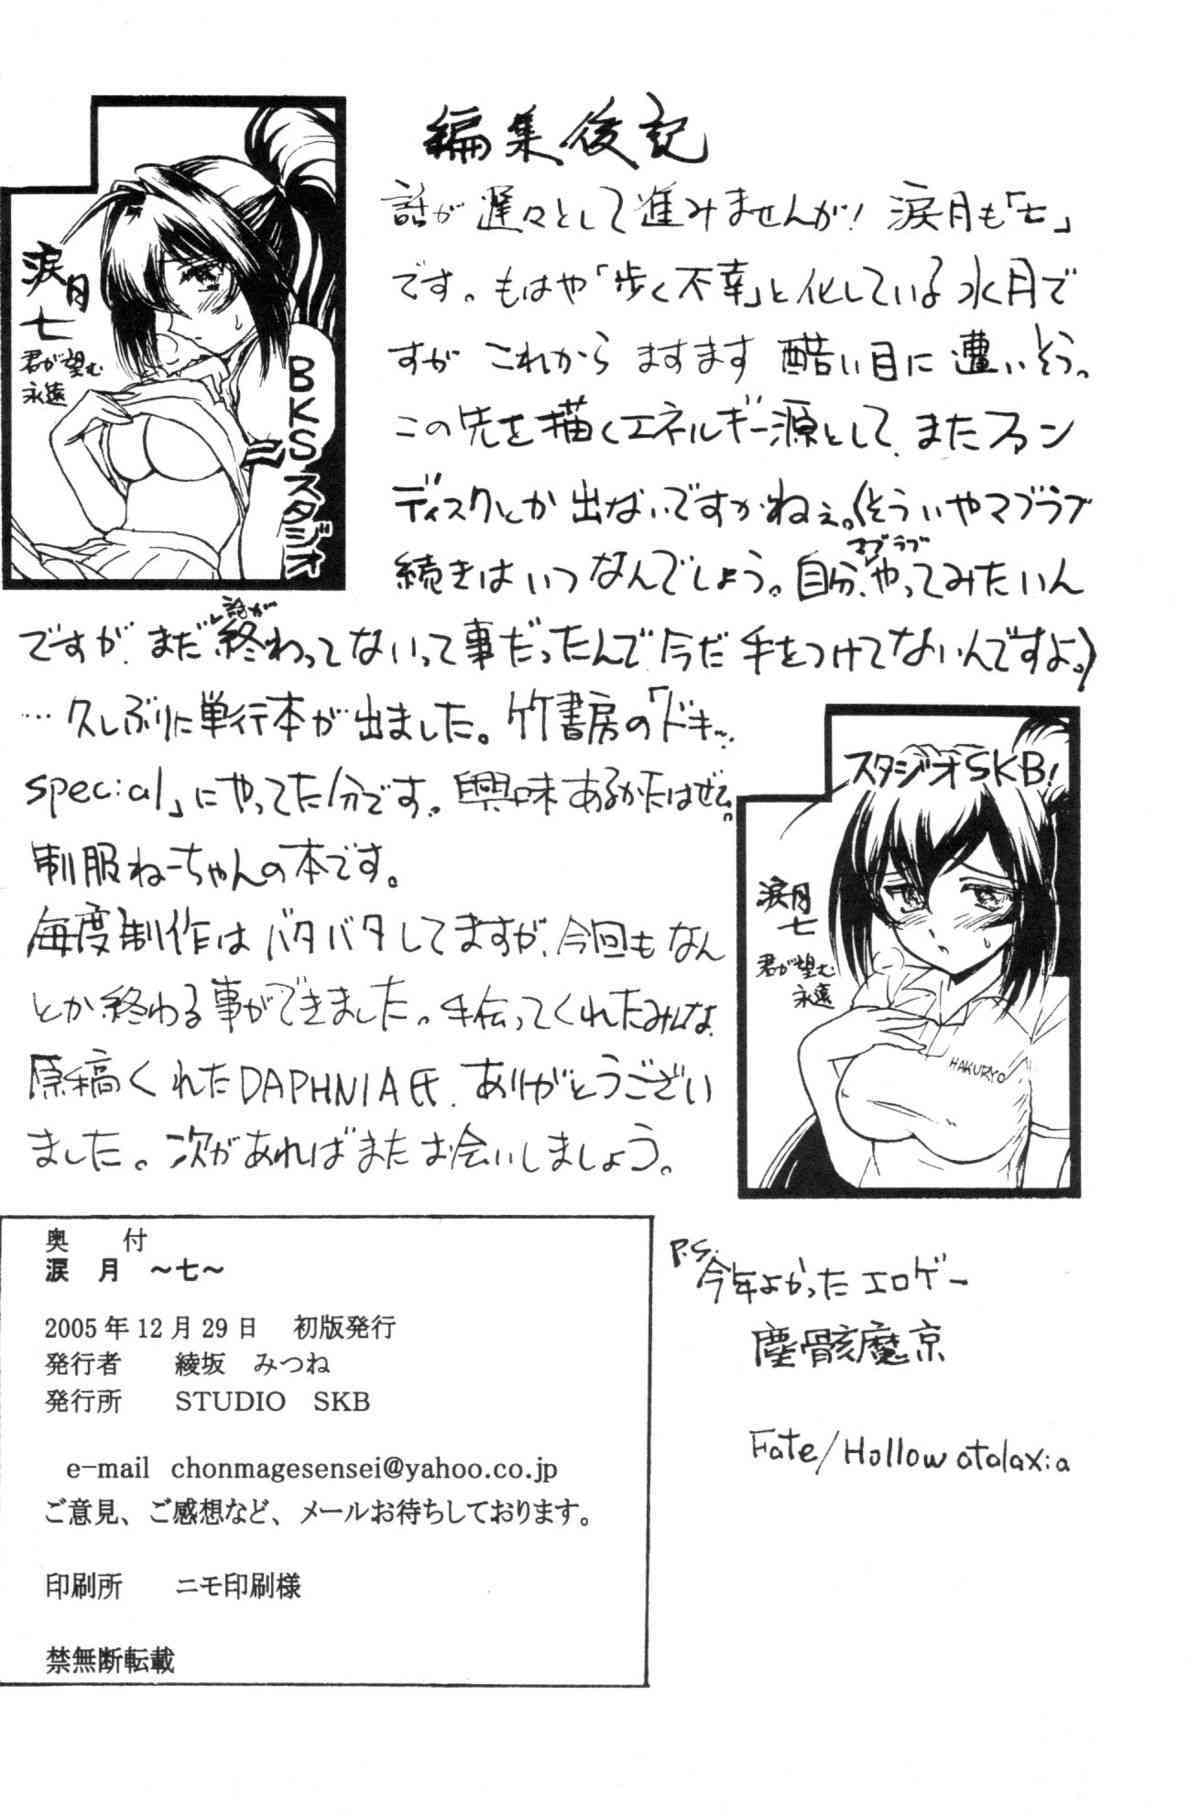 編集後記
話が遅々として進みませんが！涙月も「七」
です。もはや「歩く不幸」と化している水月で
すが これから ますます 酷い目に 遭いそう。
この先を描くエネルギー源として、またファン
ディスクとか 出ないですかねぇ。(そういやマブラブ
続きは いつ なんでしょう。自分、マブラブやってみたいん
ですが、まだ話が終わってないって事だったんで 今だ 手をつけてないんですよ。)
…久しぶりに単行本が出ました。竹書房の「ドキッ
special」にやってた分です。興味あるかたはぜひ。
制服ねーちゃんの本です。
毎度制作は バタバタしてますが、今回も なん
とか終わる事ができました。手伝ってくれたみんな、
原稿くれたDAPHNIA氏、ありがとうござい
ました。次があれば また お会いしましょう。
涙月
七
君が望む
永遠
BKSスタジオ
スタジオSKB!
涙月
七
君が望む
永遠
HAKURYO
奥　付
涙　月　～七～
2005年12月29日　初版発行
発行者　綾坂　みつね
発行所　STUDIO　SKB
e-mail chonmagesensei@yahoo.co.jp
ご意見、ご感想など、メールお待ちしております。
印刷所　ニモ印刷様
禁無断転載
P.S.
今年よかった エロゲー
塵骸魔京
Fate/Hollow atalaxia